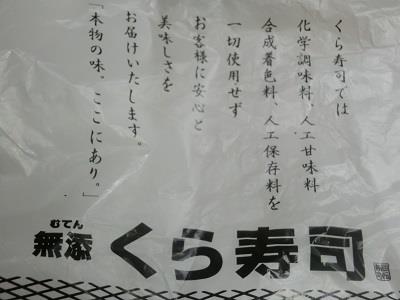 くら寿司では
化学調味料、人工甘味料
合成着色料、人工保存料を
一切使用せず
お客様に安心と
美味しさを
お届けいたします。
「本物の味。ここにあり。」
むてん
無添 くら寿司